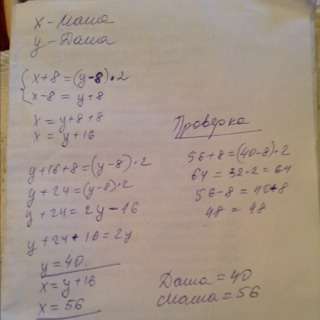 x - Маша
y - Даша
{ x+8 = (y-8)·2
x-8 = y+8
x = y+8+8
x = y+16
y+16+8 = (y-8)·2
y+24 = (y-8)·2
y+24 = 2y-16
y+24+16 = 2y
y = 40
x = y+16
x = 56
Проверка
56+8 = (40-8)·2
64 = 32·2 = 64
56-8 = 40+8
48 = 48
Даша = 40
Маша = 56